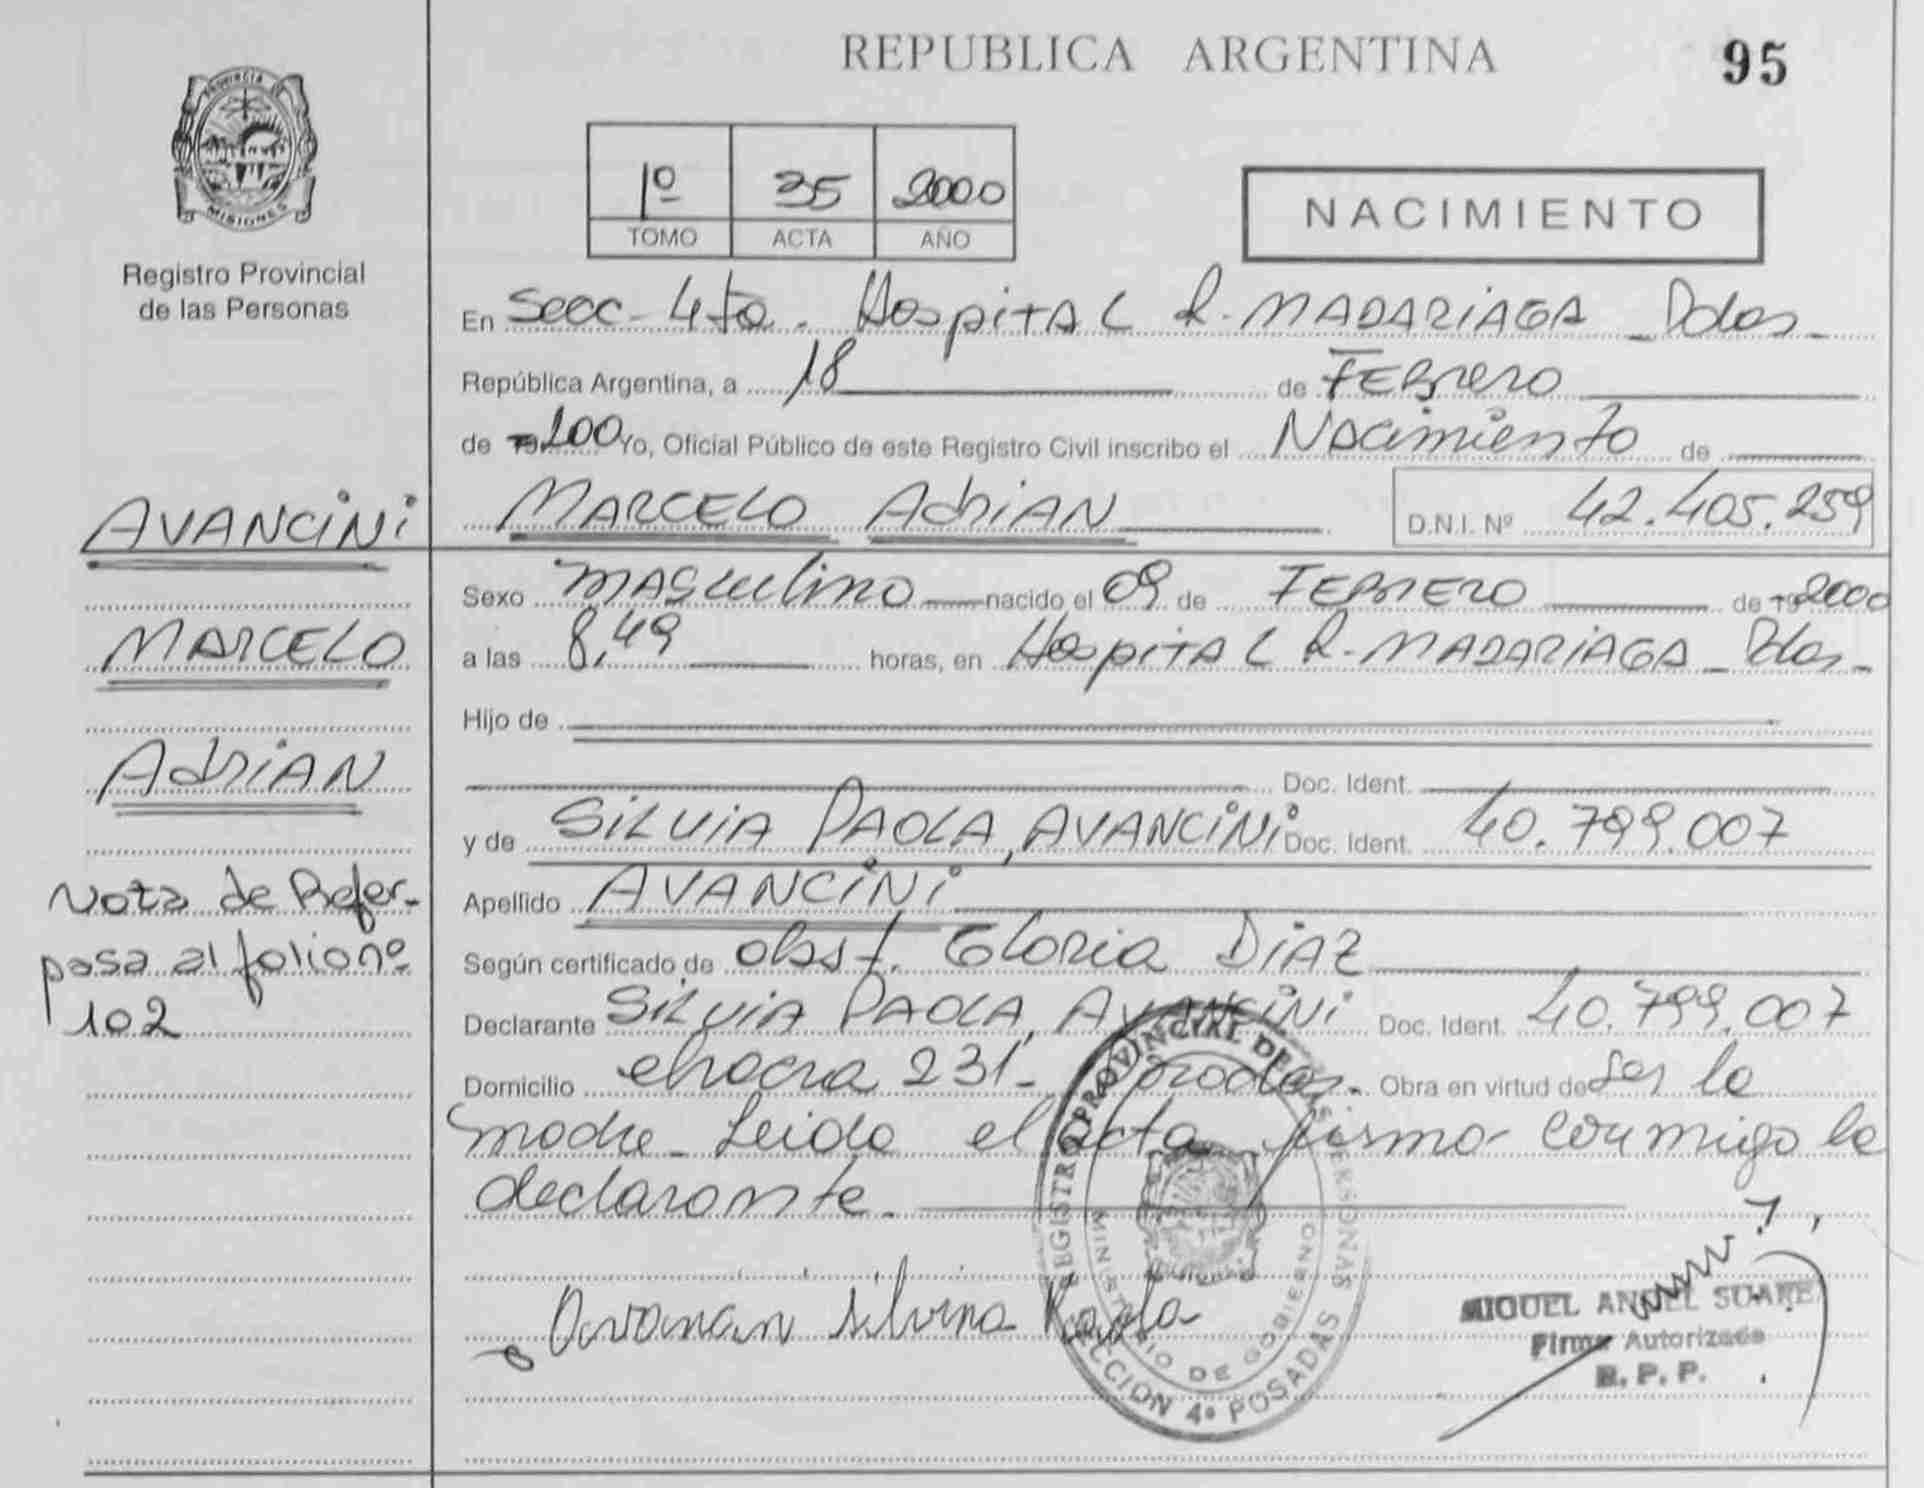 REPUBLICA ARGENTINA
95
PROVINCIA DE
MISIONES
Registro Provincial
de las Personas
1º 35 2000
TOMO ACTA AÑO
NACIMIENTO
En Secc - 4ta. Hospital R. MADARIAGA - Pdas -
República Argentina, a 18 de FEBrero
de 19 200 Yo, Oficial Público de este Registro Civil inscribo el Nacimiento de
AVANCiNi
MARCELO AdriAN
D.N.I. Nº 42.405.259
Sexo MAsculino nacido el 09 de FEBrERO de 19 2000
MARCELO
a las 8,49 horas, en Hospital R. MADARiAGA - Pdas -
Hijo de
AdriAN
Doc. Ident.
y de SiLViA PAOLA, AVANCiNi Doc. Ident. 40.799.007
Nota de Refer-
pasa al folio nº
102
Apellido AVANCiNi
Según certificado de obst. Gloria DiAZ
Declarante SiLViA PAOLA, AVANCiNi Doc. Ident. 40.799.007
Domicilio chacra 231- Posadas. Obra en virtud de ser la
madre - Leida el acta firma conmigo la
declarante.
Silvina Paola
REGISTRO PROVINCIAL DE LAS PERSONAS
MINISTERIO DE GOBIERNO
SECCION 4º POSADAS
MIGUEL ANGEL SUAREZ
Firma Autorizada
R. P. P.